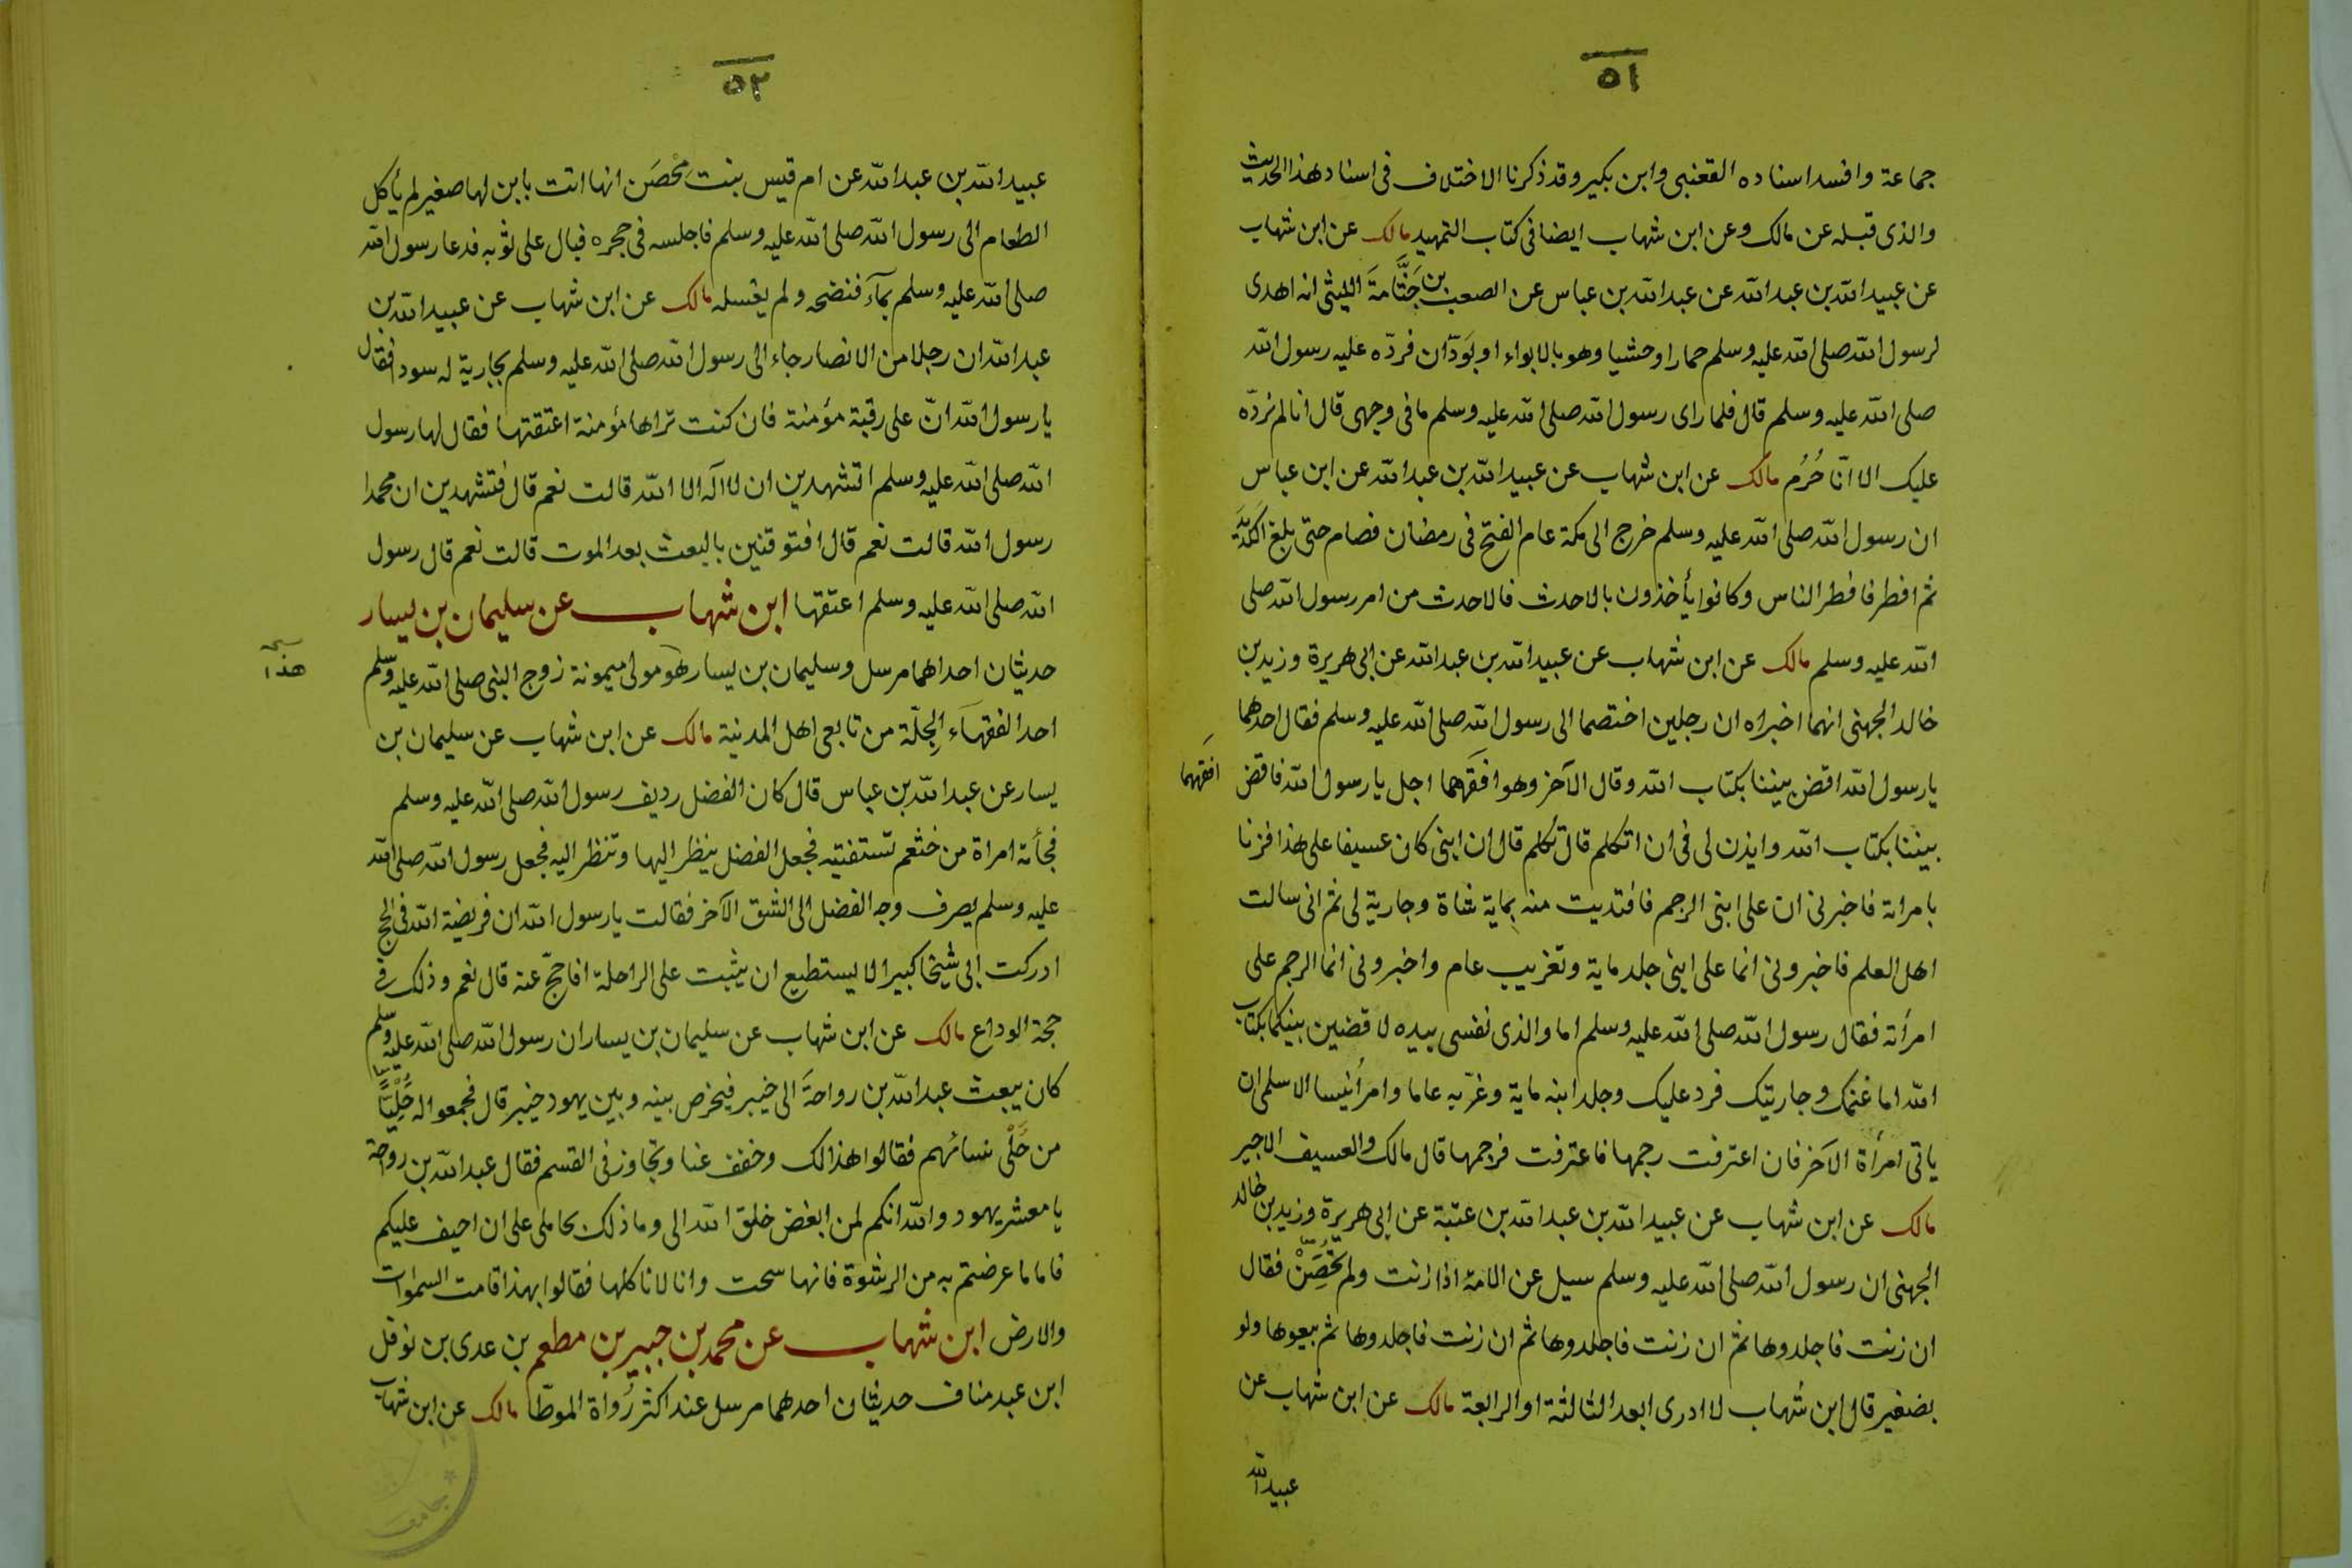 ٥١
جماعة وافسد اسناده القعنبى وابن بكير وقد ذكرنا الاختلاف فى اسناد هذا الحديث
والذى قبله عن مالك وعن ابن شهاب ايضا فى كتاب التمهيد مالك عن ابن شهاب
عن عبيد الله بن عبد الله عن عبد الله بن عباس عن الصعب بن جَثَّامَةَ الليثى انه اهدى
لرسول الله صلى الله عليه وسلم حمارا وحشيا وهو بالابواء او بوَدّان فردّه عليه رسول الله
صلى الله عليه وسلم قال فلما راى رسول الله صلى الله عليه وسلم ما فى وجهى قال انا لم نردّه
عليك الا انّا حُرُم مالك عن ابن شهاب عن عبيد الله بن عبد الله عن ابن عباس
ان رسول الله صلى الله عليه وسلم خرج الى مكة عام الفتح فى رمضان فصام حتى بلغ الكَدِيَد
ثم افطر فافطر الناس وكانوا يأخذون بالاحدث فالاحدث من امر رسول الله صلى
الله عليه وسلم مالك عن ابن شهاب عن عبيد الله بن عبد الله عن ابى هريرة وزيد بن
خالد الجهنى انهما اخبراه ان رجلين اختصما الى رسول الله صلى الله عليه وسلم فقال احدهما
يا رسول الله اقض بيننا بكتاب الله وقال الآخر وهو افقههما اجل يا رسول الله فاقض
افقههما
بيننا بكتاب الله وايذن لى فى ان اتكلم قال تكلم قال ان ابنى كان عسيفا على هذا فزنا
بامراته فاخبرنى ان على ابنى الرجم فافتديت منه بماية شاة وجارية لى ثم انى سالت
اهل العلم فاخبرونى انما على ابنى جلد ماية وتغريب عام واخبرونى انما الرجم على
امرأته فقال رسول الله صلى الله عليه وسلم اما والذى نفسى بيده لاقضين بينكما بكتاب
الله اما غنمك وجاريتك فرد عليك وجلد ابنه ماية وغرّبه عاما وامر أنيسا الاسلمى ان
ياتى امرأة الآخر فان اعترفت رجمها فاعترفت فرجمها قال مالك والعسيف الاجير
مالك عن ابن شهاب عن عبيد الله بن عبد الله بن عتبة عن ابى هريرة وزيد بن خالد
الجهنى ان رسول الله صلى الله عليه وسلم سيل عن الامة اذا زنت ولم تحصن فقال
ان زنت فاجلدوها ثم ان زنت فاجلدوها ثم ان زنت فاجلدوها ثم بيعوها ولو
بضفير قال ابن شهاب لا ادرى ابعد الثالثة او الرابعة مالك عن ابن شهاب عن
عبيد الله
٥٢
عبيد الله بن عبد الله عن ام قيس بنت محصَن انها اتت بابن لها صغير لم يأكل
الطعام الى رسول الله صلى الله عليه وسلم فاجلسه فى حجره فبال على ثوبه فدعا رسول الله
صلى الله عليه وسلم بمآء فنضحه ولم يغسله مالك عن ابن شهاب عن عبيد الله بن
عبد الله ان رجلا من الانصار جاء الى رسول الله صلى الله عليه وسلم بجارية له سودا فقال
يا رسول الله انّ على رقبة مؤمنة فان كنت تراها مؤمنة اعتقتها فقال لها رسول
الله صلى الله عليه وسلم اتشهدين ان لا آله الا الله قالت نعم قال فتشهدين ان محمدا
رسول الله قالت نعم قال افتوقنين بالبعث بعد الموت قالت نعم قال رسول
الله صلى الله عليه وسلم اعتقها ابن شهاب عن سليمان بن يسار
حديثان احداهما مرسل وسليمان بن يسار هو مولى ميمونة زوج النبى صلى الله عليه وسلم
هذا
احد الفقهآء الجِلّة من تابعى اهل المدينة مالك عن ابن شهاب عن سليمان بن
يسار عن عبد الله بن عباس قال كان الفضل رديف رسول الله صلى الله عليه وسلم
فجأته امراة من خثعم تستفتيه فجعل الفضل ينظر اليها وتنظر اليه فجعل رسول الله صلى الله
عليه وسلم يصرف وجه الفضل الى الشق الآخر فقالت يا رسول الله ان فريضة الله فى الحج
ادركت ابى شيخا كبيرا لا يستطيع ان يثبت على الراحلة افاحجّ عنه قال نعم وذلك فى
حجة الوداع مالك عن ابن شهاب عن سليمان بن يسار ان رسول الله صلى الله عليه وسلم
كان يبعث عبد الله بن رواحَة الى خيبر فيخرص بينه وبين يهود خيبر قال فجمعوا له حُلِيّاً
من حَلْى نسائهم فقالوا هذا لك وخفف عنا وتجاوز فى القسم فقال عبد الله بن رواحة
يا معشر يهود والله انكم لمن ابغض خلق الله الى وما ذلك بحاملى على ان احيف عليكم
فاما ما عرضتم به من الرشوة فانها سحت وانا لا ناكلها فقالوا بهذا قامت السموات
والارض ابن شهاب عن محمد بن جبير بن مطعم بن عدى بن نوفل
ابن عبد مناف حديثان احدهما مرسل عند اكثر رُواة الموطّا مالك عن ابن شهاب